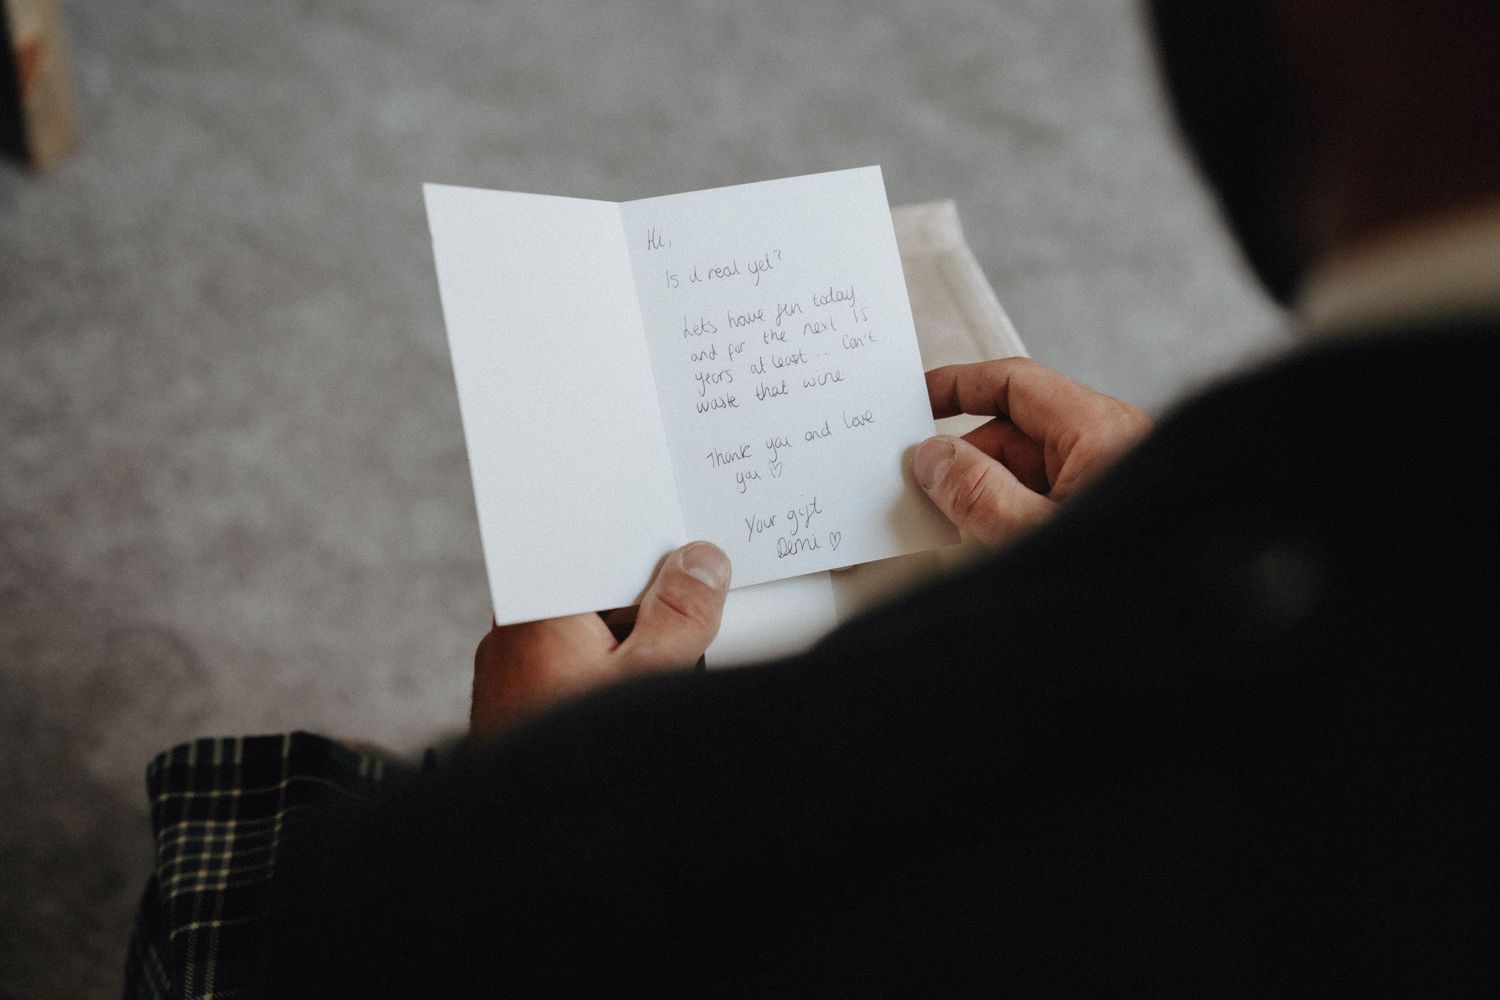 Hi,
Is it real yet?
Lets have fun today
and for the next 15
years at least... Can't
waste that wine
Thank you and love
you ♡
Your gift
Demi ♡